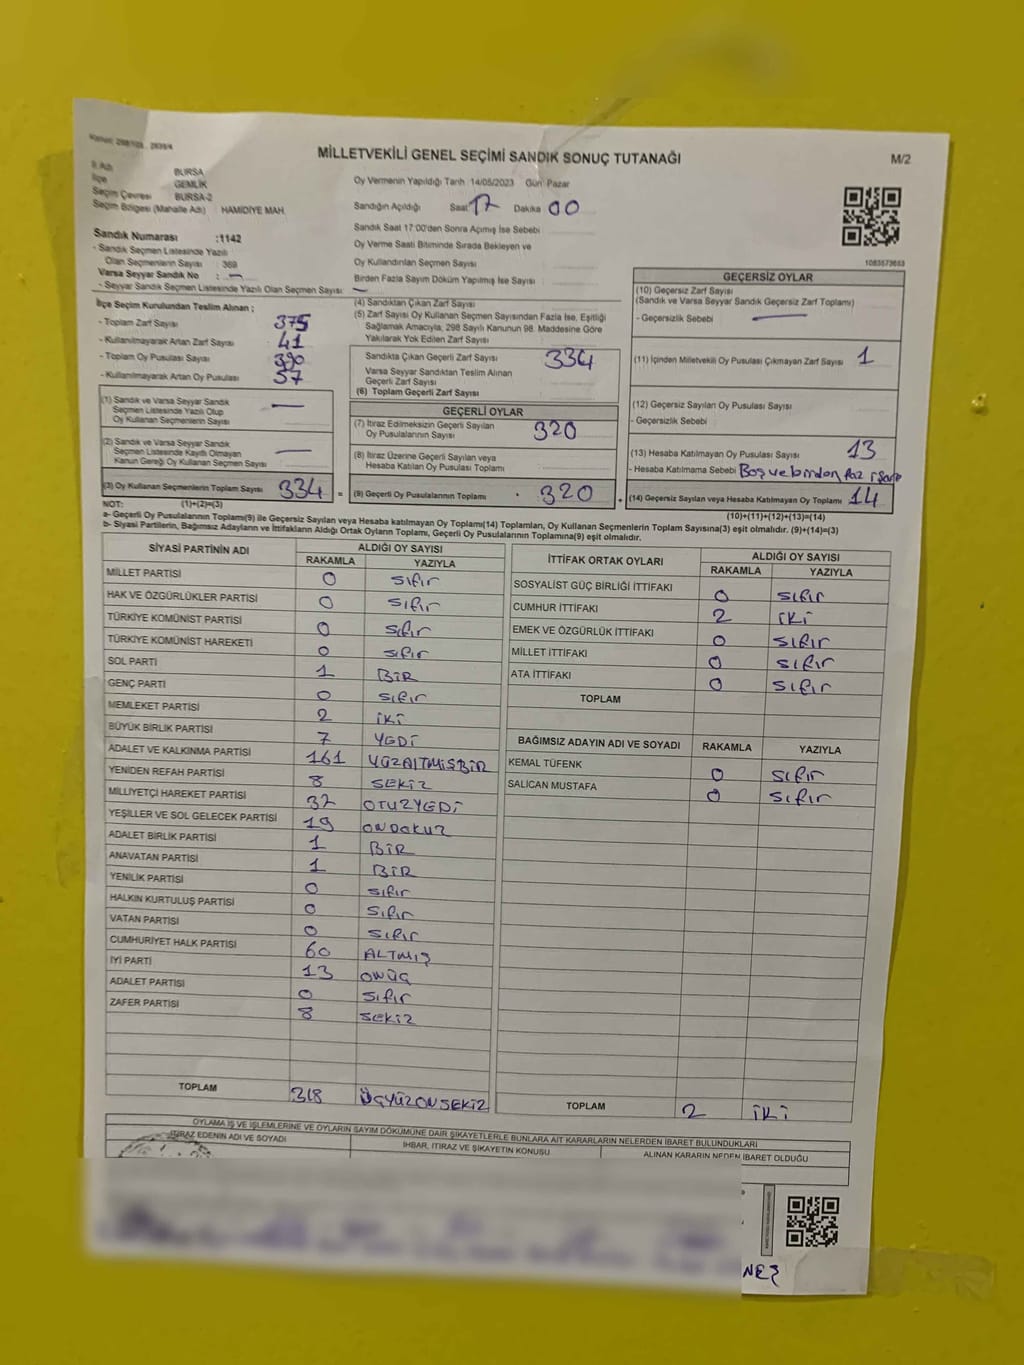 MİLLETVEKİLİ GENEL SEÇİMİ SANDIK SONUÇ TUTANAĞI
M/2
İl Adı BURSA
İlçe GEMLİK
Seçim Çevresi BURSA-2
Seçim Bölgesi (Mahalle Adı) : HAMİDİYE MAH.
Sandık Numarası :1142
- Sandık Seçmen Listesinde Yazılı
Olan Seçmenlerin Sayısı : 369
Varsa Seyyar Sandık No : —
- Seyyar Sandık Seçmen Listesinde Yazılı Olan Seçmen Sayısı: —
Oy Vermenin Yapıldığı Tarih :14/05/2023 Gün: Pazar
Sandığın Açıldığı Saat 17 Dakika 00
Sandık Saat 17:00'den Sonra Açılmış İse Sebebi
Oy Verme Saati Bitiminde Sırada Bekleyen ve
Oy Kullandırılan Seçmen Sayısı
Birden Fazla Sayım Döküm Yapılmış İse Sayısı
1083573653
İlçe Seçim Kurulundan Teslim Alınan ;
- Toplam Zarf Sayısı 375
- Kullanılmayarak Artan Zarf Sayısı 41
- Toplam Oy Pusulası Sayısı 390
- Kullanılmayarak Artan Oy Pusulası 57
(1) Sandık ve Varsa Seyyar Sandık
Seçmen Listesinde Yazılı Olup
Oy Kullanan Seçmenlerin Sayısı —
(2) Sandık ve Varsa Seyyar Sandık
Seçmen Listesinde Kayıtlı Olmayan
Kanun Gereği Oy Kullanan Seçmen Sayısı —
(3) Oy Kullanan Seçmenlerin Toplam Sayısı 334 =
(4) Sandıktan Çıkan Zarf Sayısı
(5) Zarf Sayısı Oy Kullanan Seçmen Sayısından Fazla İse, Eşitliği
Sağlamak Amacıyla, 298 Sayılı Kanunun 98. Maddesine Göre
Yakılarak Yok Edilen Zarf Sayısı
Sandıkta Çıkan Geçerli Zarf Sayısı 334
Varsa Seyyar Sandıktan Teslim Alınan
Geçerli Zarf Sayısı
(6) Toplam Geçerli Zarf Sayısı
GEÇERLİ OYLAR
(7) İtiraz Edilmeksizin Geçerli Sayılan
Oy Pusulalarının Sayısı 320
(8) İtiraz Üzerine Geçerli Sayılan veya
Hesaba Katılan Oy Pusulası Toplamı
(9) Geçerli Oy Pusulalarının Toplamı 320 +
GEÇERSİZ OYLAR
(10) Geçersiz Zarf Sayısı
(Sandık ve Varsa Seyyar Sandık Geçersiz Zarf Toplamı)
- Geçersizlik Sebebi —
(11) İçinden Milletvekili Oy Pusulası Çıkmayan Zarf Sayısı 1
(12) Geçersiz Sayılan Oy Pusulası Sayısı
- Geçersizlik Sebebi
(13) Hesaba Katılmayan Oy Pusulası Sayısı 13
- Hesaba Katılmama Sebebi Boş ve birden faz
(14) Geçersiz Sayılan veya Hesaba Katılmayan Oy Toplamı 14
(10)+(11)+(12)+(13)=(14)
NOT: (1)+(2)=(3)
a- Geçerli Oy Pusulalarının Toplamı(9) ile Geçersiz Sayılan veya Hesaba katılmayan Oy Toplamı(14) Toplamları, Oy Kullanan Seçmenlerin Toplam Sayısına(3) eşit olmalıdır. (9)+(14)=(3)
b- Siyasi Partilerin, Bağımsız Adayların ve İttifakların Aldığı Ortak Oyların Toplamı, Geçerli Oy Pusulalarının Toplamına(9) eşit olmalıdır.
SİYASİ PARTİNİN ADI ALDIĞI OY SAYISI
RAKAMLA YAZIYLA
MİLLET PARTİSİ 0 sıfır
HAK VE ÖZGÜRLÜKLER PARTİSİ 0 sıfır
TÜRKİYE KOMÜNİST PARTİSİ 0 sıfır
TÜRKİYE KOMÜNİST HAREKETİ 0 sıfır
SOL PARTİ 1 BİR
GENÇ PARTİ 0 sıfır
MEMLEKET PARTİSİ 2 iKi
BÜYÜK BİRLİK PARTİSİ 7 YEDİ
ADALET VE KALKINMA PARTİSİ 161 YÜZALTMIŞBİR
YENİDEN REFAH PARTİSİ 8 SEKİZ
MİLLİYETÇİ HAREKET PARTİSİ 37 OTUZYEDİ
YEŞİLLER VE SOL GELECEK PARTİSİ 19 ONDOKUZ
ADALET BİRLİK PARTİSİ 1 BİR
ANAVATAN PARTİSİ 1 BİR
YENİLİK PARTİSİ 0 sıfır
HALKIN KURTULUŞ PARTİSİ 0 sıfır
VATAN PARTİSİ 0 sıfır
CUMHURİYET HALK PARTİSİ 60 ALTMIŞ
İYİ PARTİ 13 ONÜÇ
ADALET PARTİSİ 0 sıfır
ZAFER PARTİSİ 8 SEKİZ
TOPLAM 318 ÜÇYÜZONSEKİZ
İTTİFAK ORTAK OYLARI ALDIĞI OY SAYISI
RAKAMLA YAZIYLA
SOSYALİST GÜÇ BİRLİĞİ İTTİFAKI 0 sıfır
CUMHUR İTTİFAKI 2 iKi
EMEK VE ÖZGÜRLÜK İTTİFAKI 0 sıfır
MİLLET İTTİFAKI 0 sıfır
ATA İTTİFAKI 0 sıfır
TOPLAM
BAĞIMSIZ ADAYIN ADI VE SOYADI RAKAMLA YAZIYLA
KEMAL TÜFENK 0 sıfır
SALİCAN MUSTAFA 0 sıfır
TOPLAM 2 iKi
OYLAMA İŞ VE İŞLEMLERİNE VE OYLARIN SAYIM DÖKÜMÜNE DAİR ŞİKAYETLERLE BUNLARA AİT KARARLARIN NELERDEN İBARET BULUNDUKLARI
İTİRAZ EDENİN ADI VE SOYADI
İHBAR, İTİRAZ VE ŞİKAYETİN KONUSU
ALINAN KARARIN NEDEN İBARET OLDUĞU